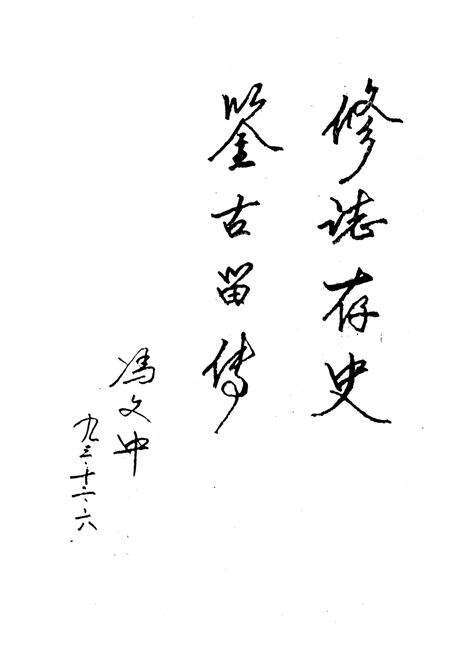 修誌存史
鉴古留传
冯文中
九三.十二.六